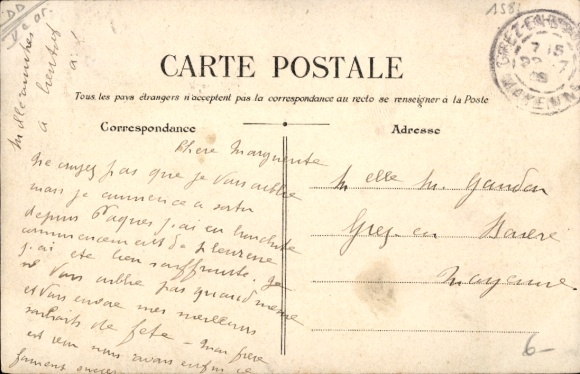 CARTE POSTALE
Tous les pays étrangers n'acceptent pas la correspondance au recto se renseigner à la Poste
Correspondance
Adresse
Chère Marguerite
Ne croyez pas que je vous oublie
mais je commence a sortir
depuis Pâques j'ai eu bronchite
commencement de pleuresie
j'ai été bien souffrante. Je
ne vous oublie pas quand même
et vous envoie mes meilleurs
souhaits de fête - Mon frère
est venu nous avons enfin
Mille amitiés
a bientot
Melle M. Gandon
Grez-en Bouère
Mayenne
GREZ-EN-BOUÈRE
7 15
MAYENNE
6-